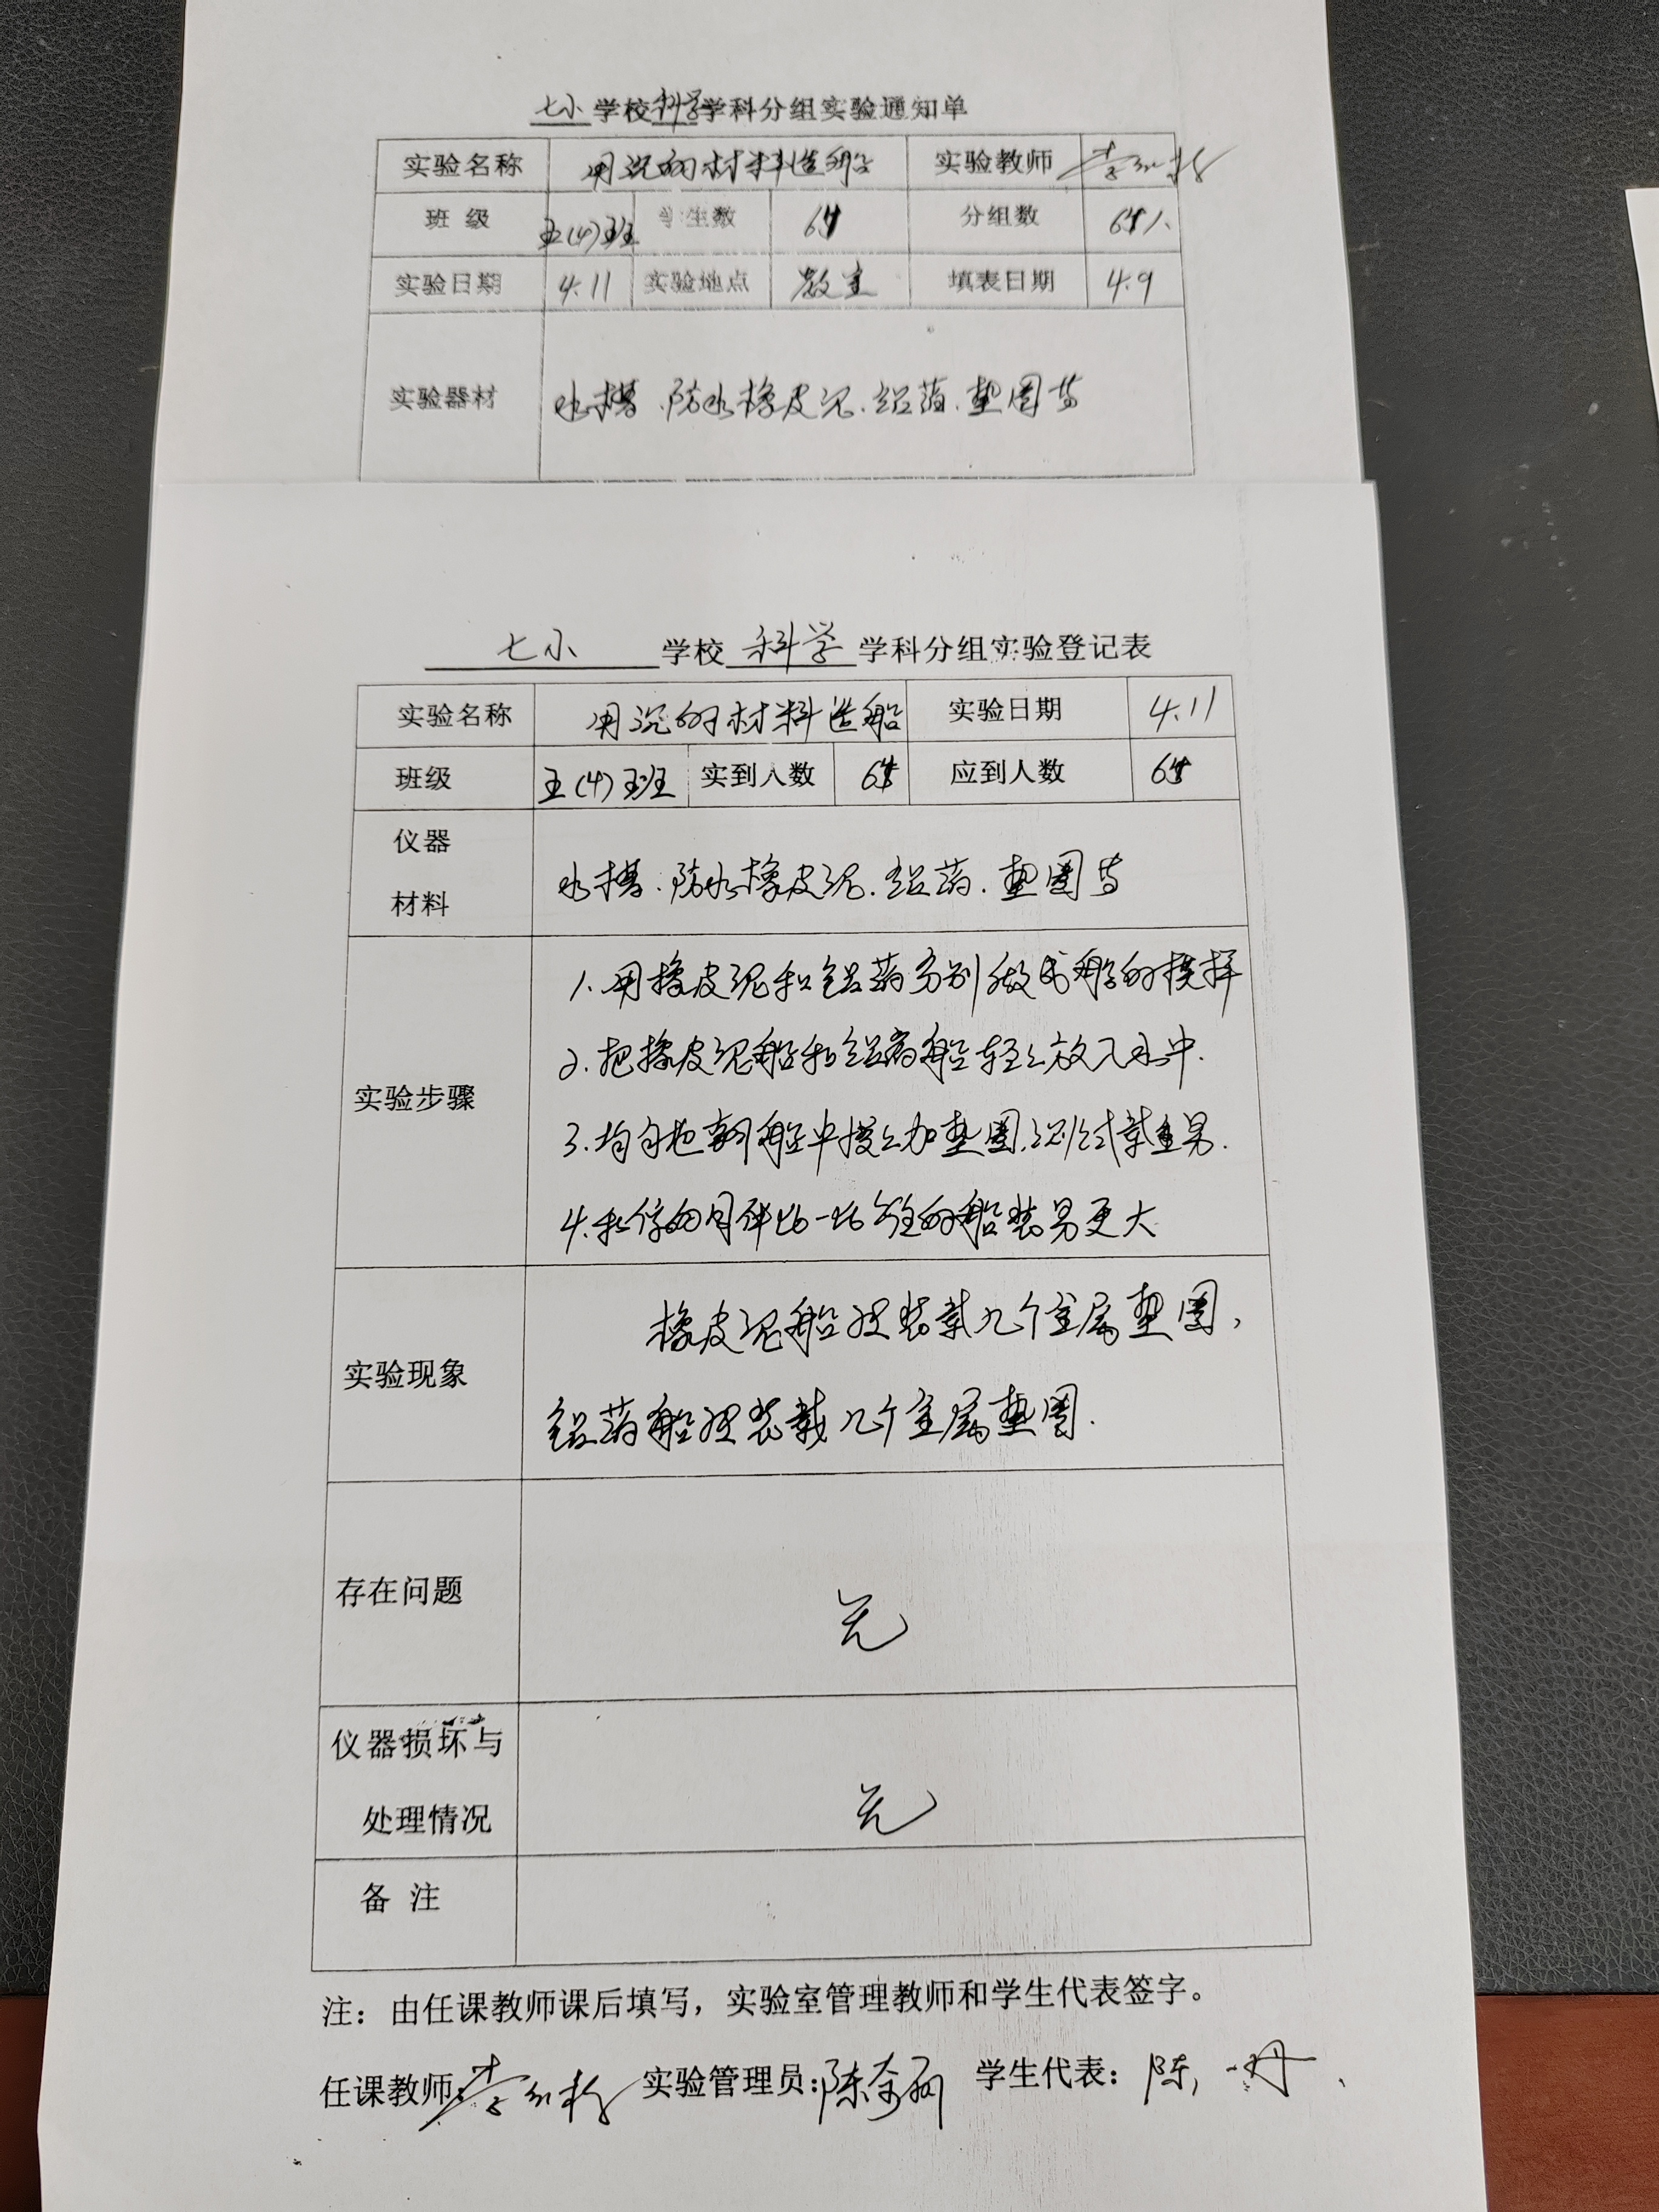 七小学校科学学科分组实验通知单
实验名称 用沉的材料造船 实验教师
班 级 五(4)班 学生数 分组数
实验日期 4.11 实验地点 教室 填表日期 4.9
实验器材 水槽.防水橡皮泥.铝箔.垫圈等
七小 学校 科学 学科分组实验登记表
实验名称 用沉的材料造船 实验日期 4.11
班级 五(4)班 实到人数 应到人数
仪器
材料
水槽.防水橡皮泥.铝箔.垫圈等
实验步骤
1.用橡皮泥和铝箔分别做成船的模样
2.把橡皮泥船和铝箔船轻轻放入水中.
3.均匀地朝船中慢慢加垫圈,测试载重量.
4.和你的同伴比一比谁的船装量更大
实验现象
橡皮泥船现装载几个金属垫圈,
铝箔船现装载几个金属垫圈.
存在问题
无
仪器损坏与
处理情况
无
备 注
注：由任课教师课后填写，实验室管理教师和学生代表签字。
任课教师: 实验管理员: 学生代表：